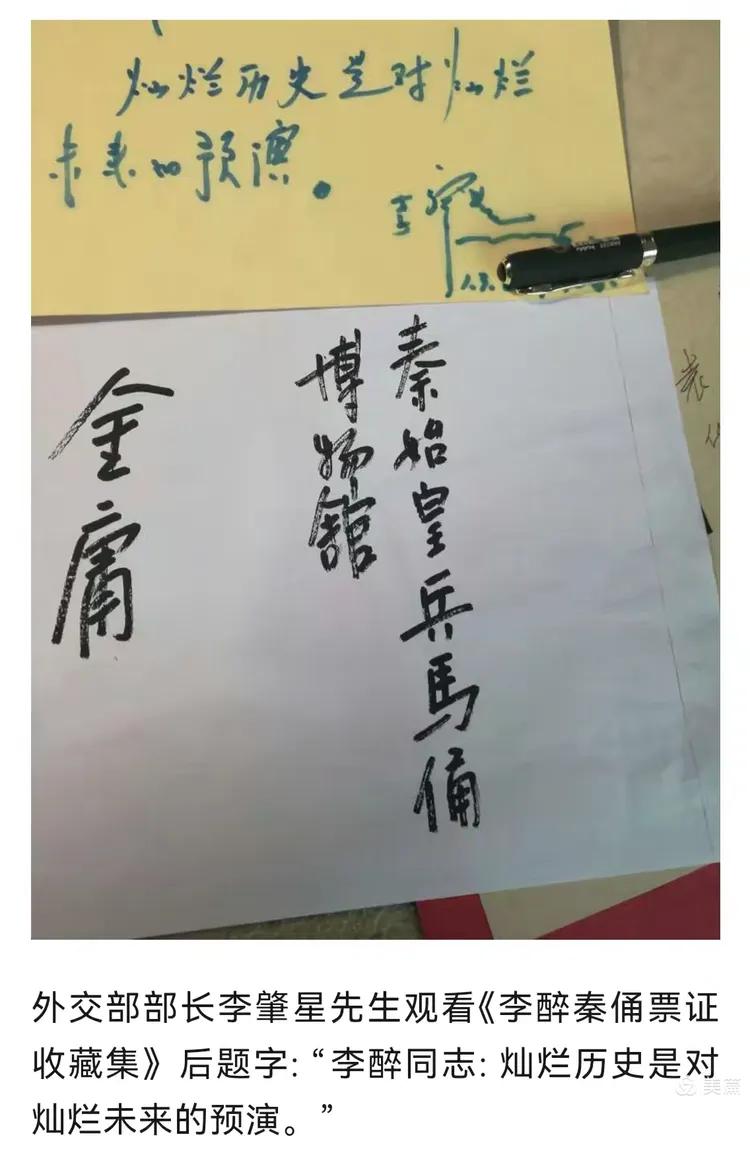 灿烂历史是对灿烂
未来的预演。
秦始皇兵馬俑
博物舘
金庸
外交部部长李肇星先生观看《李醉秦俑票证
收藏集》后题字：“李醉同志：灿烂历史是对
灿烂未来的预演。”
美篇